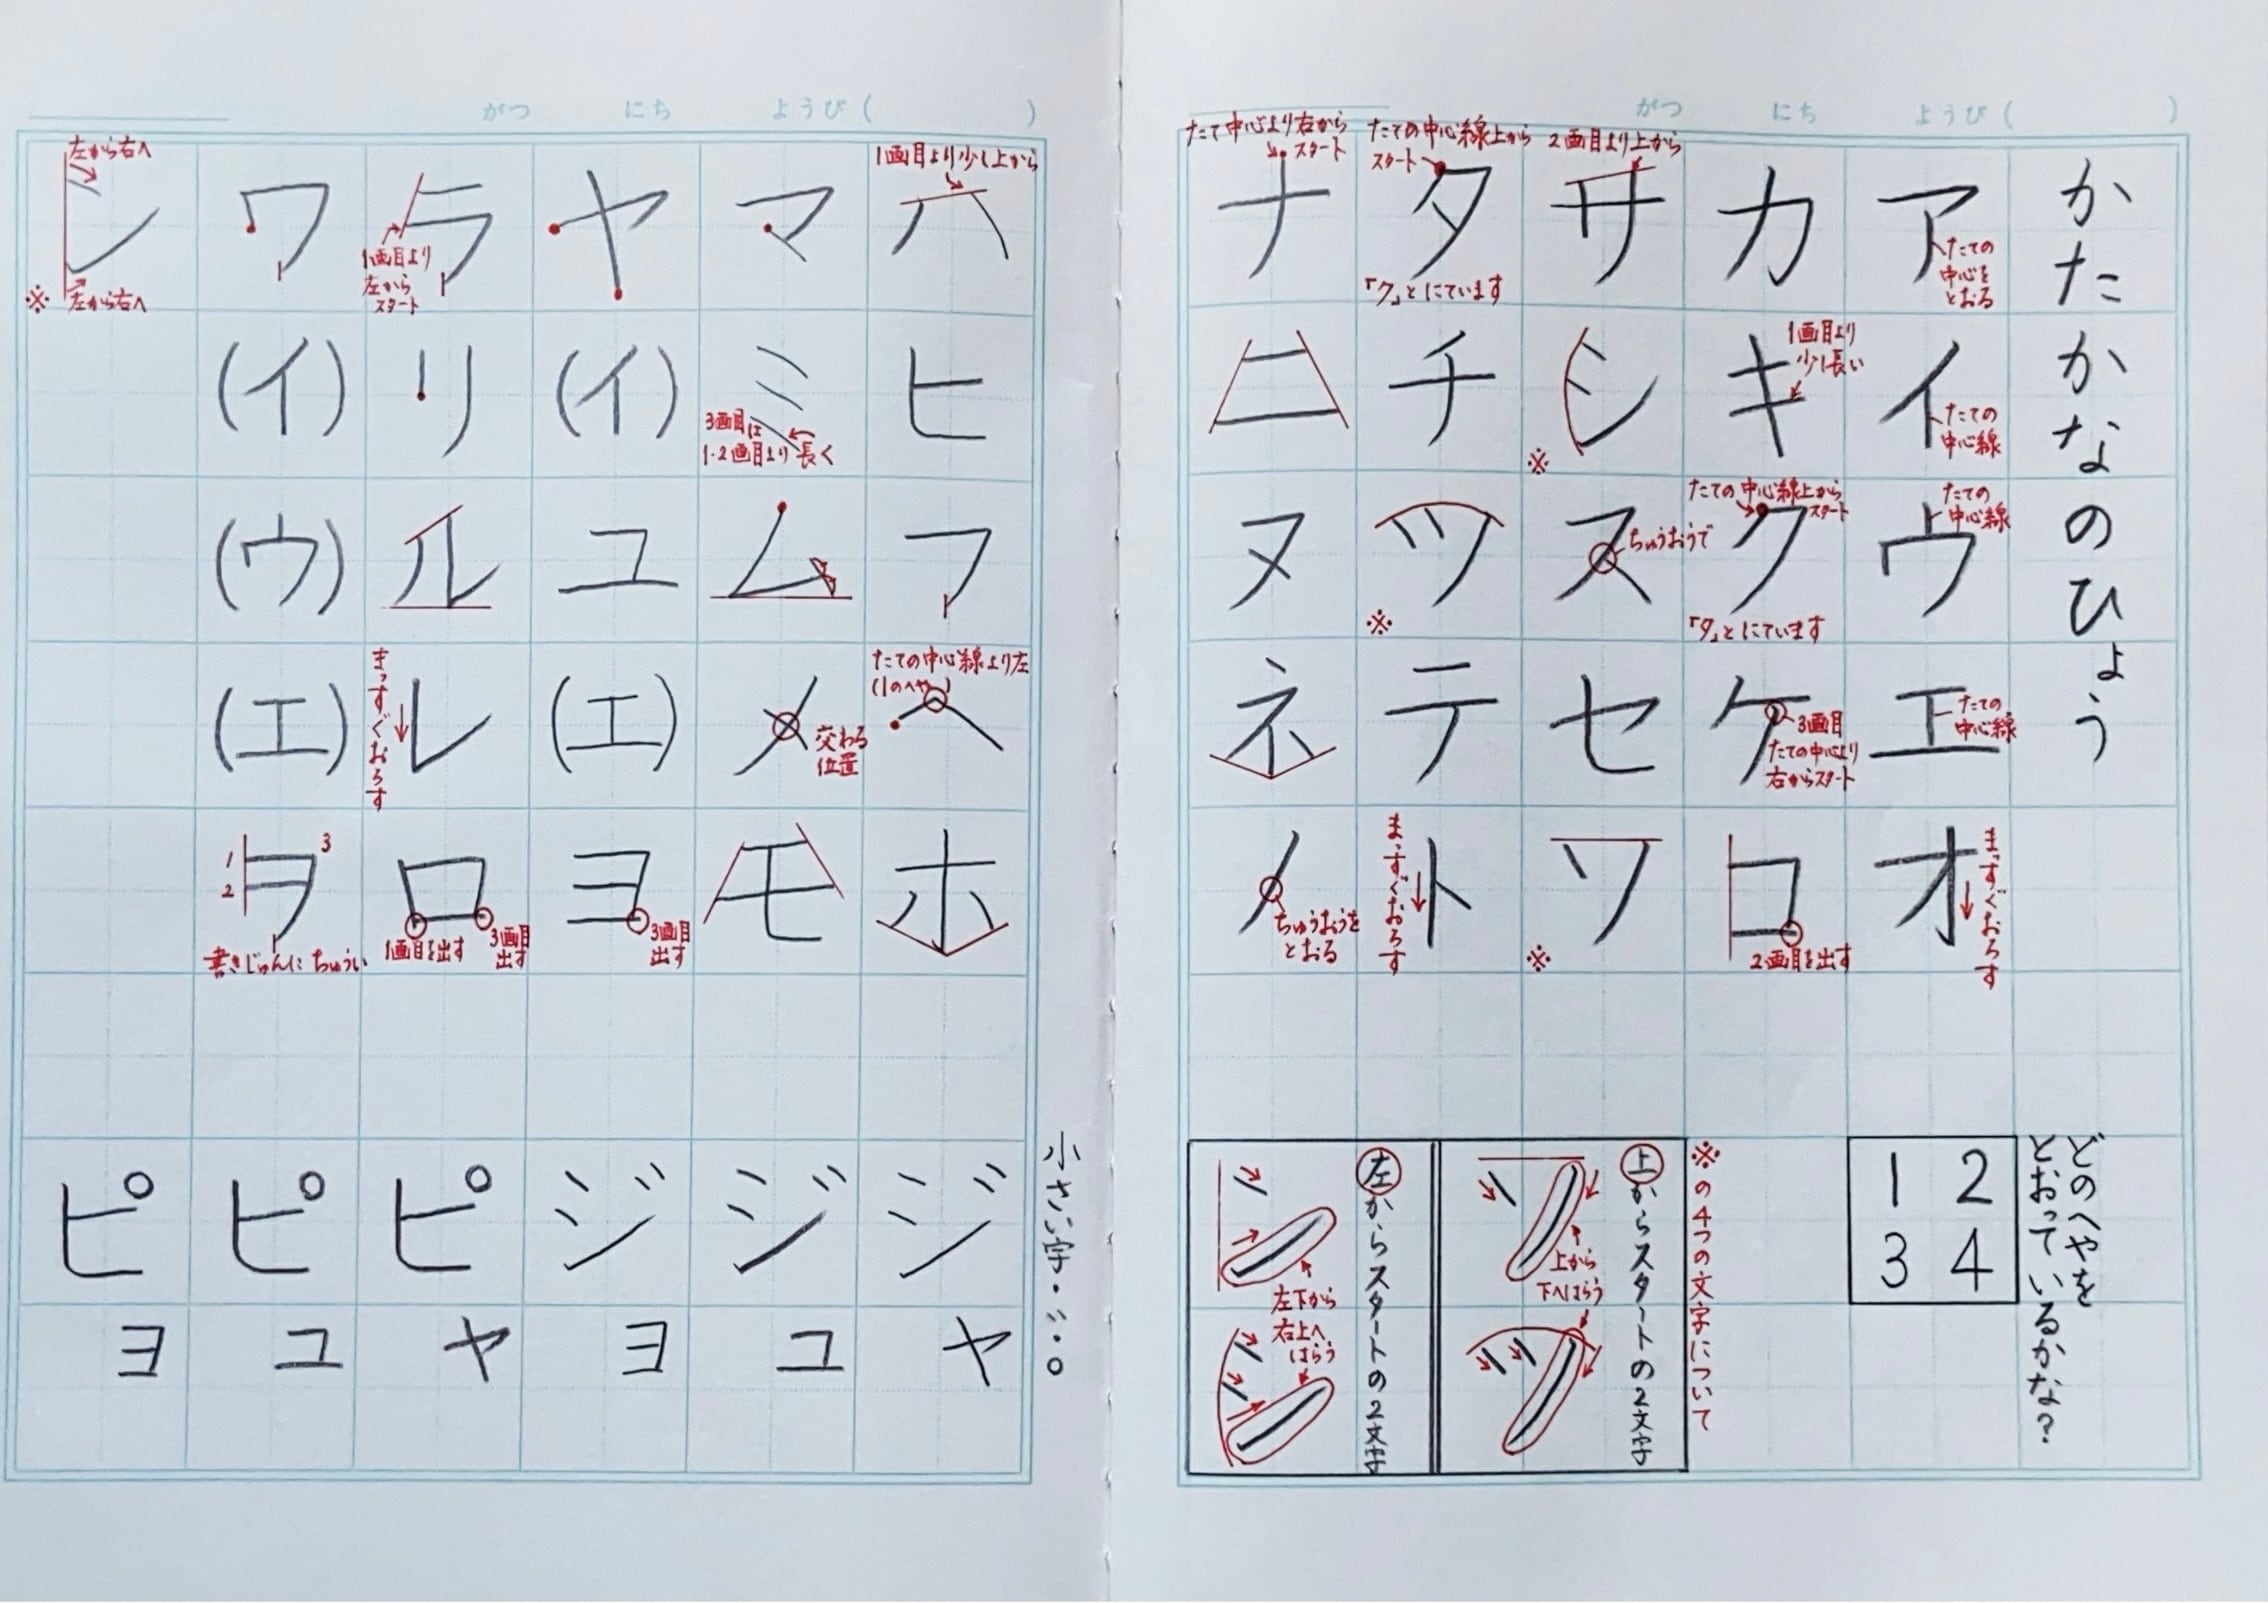 がつ にち ようび( )
かたかなのひょう
どのへやを
とおっているかな?
1 2
3 4
ア
たての
中心を
とおる
イ
たての
中心線
ウ
たての
中心線
エ
たての
中心線
オ
まっすぐおろす
カ
キ
1画目より
少し長い
ク
たての中心線上から
スタート
「タ」とにています
ケ
3画目
たての中心より
右からスタート
コ
2画目を出す
※の4つの文字について
サ
2画目より上から
シ
※
ス
ちゅうおうで
セ
ソ
※
上からスタートの2文字
上から
下へはらう
タ
たての中心線上から
スタート
「ク」とにています
チ
ツ
※
テ
ト
まっすぐおろす
左からスタートの2文字
左下から
右上へ
はらう
ナ
たて中心より右から
スタート
ニ
ヌ
ネ
ノ
ちゅうおうを
とおる
がつ にち ようび( )
小さい字・゛・゜
ハ
1画目より少し上から
ヒ
フ
ヘ
たての中心線より左
(1のへや)
ホ
ジ
ヤ
マ
ミ
3画目は
1・2画目より長く
ム
メ
交わる
位置
モ
ジ
ユ
ヤ
(イ)
ユ
(エ)
ヨ
3画目
出す
ジ
ヨ
ラ
1画目より
左から
スタート
リ
ル
レ
まっすぐおろす
ロ
1画目を出す
3画目
出す
ピ
ヤ
ワ
(イ)
(ウ)
(エ)
ヲ
1
2
3
書きじゅんにちゅうい
ピ
ユ
ン
左から右へ
左から右へ
※
ピ
ヨ